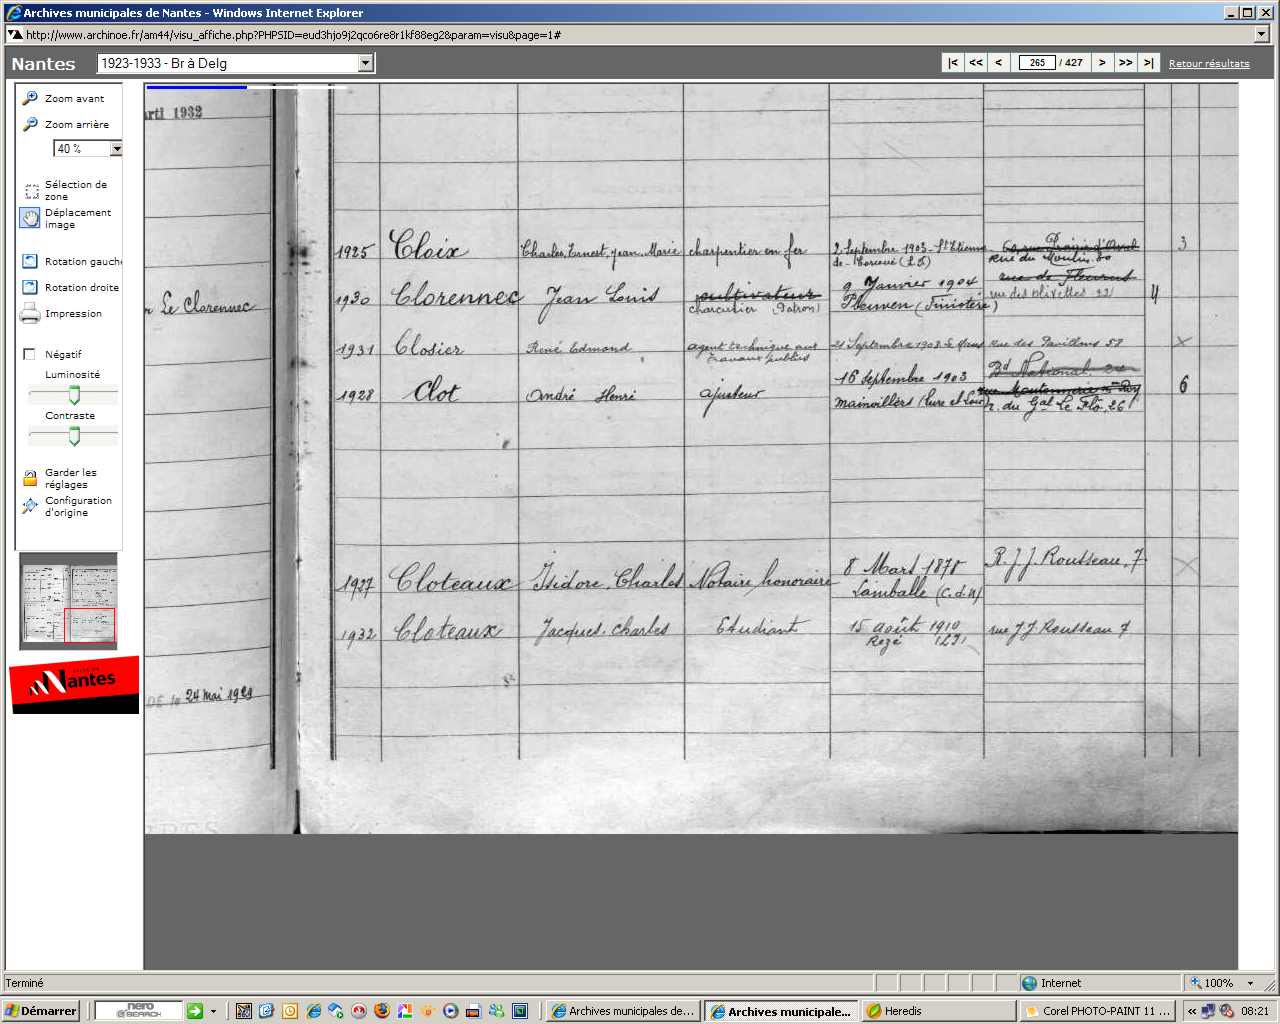 Archives municipales de Nantes - Windows Internet Explorer
http://www.archinoe.fr/am44/visu_affiche.php?PHPSID=eud3hjo9j2qco6re8r1kf88eg2&param=visu&page=1#
Nantes 1923-1933 - Br à Delg |< << < 265 / 427 > >> >| Retour résultats
Zoom avant
Zoom arrière
40 %
Sélection de
zone
Déplacement
image
Rotation gauch
Rotation droite
Impression
Négatif
Luminosité
Contraste
Garder les
réglages
Configuration
d'origine
Nantes
arti 1932
Le Clorennec
24 mai 1929
1925 Cloix Charles, Ernest, Jean, Marie charpentier en fer 2 Septembre 1903 - St Etienne
de (L.I)
Rue du Moulin, 30
1930 Clorennec Jean Louis cultivateur 9 Janvier 1904 rue de Fleurus
charcutier (Patron) (Finistère) rue des Olivettes 4
3
1931 Closier René Edmond agent technique aux 21 Septembre 1908 Le Rue des Pavillons 58 X
travaux publics
1928 Clot André Henri ajusteur 16 Septembre 1903 Bd National
mainvillers (Eure et Loir)
r. du Gal Le Flô. 26 6
1927 Cloteaux Isidore, Charles Notaire honoraire 8 Mars 1878 R. J. J. Rousseau, 7 X
Lamballe (C. d. N)
1932 Cloteaux Jacques, Charles Etudiant 15 août 1910 rue J J Rousseau 7
Rezé (L I)
Terminé Internet 100%
Démarrer nero SEARCH Archives municipales de... Archives municipale... Heredis Corel PHOTO-PAINT 11 ... 08:21